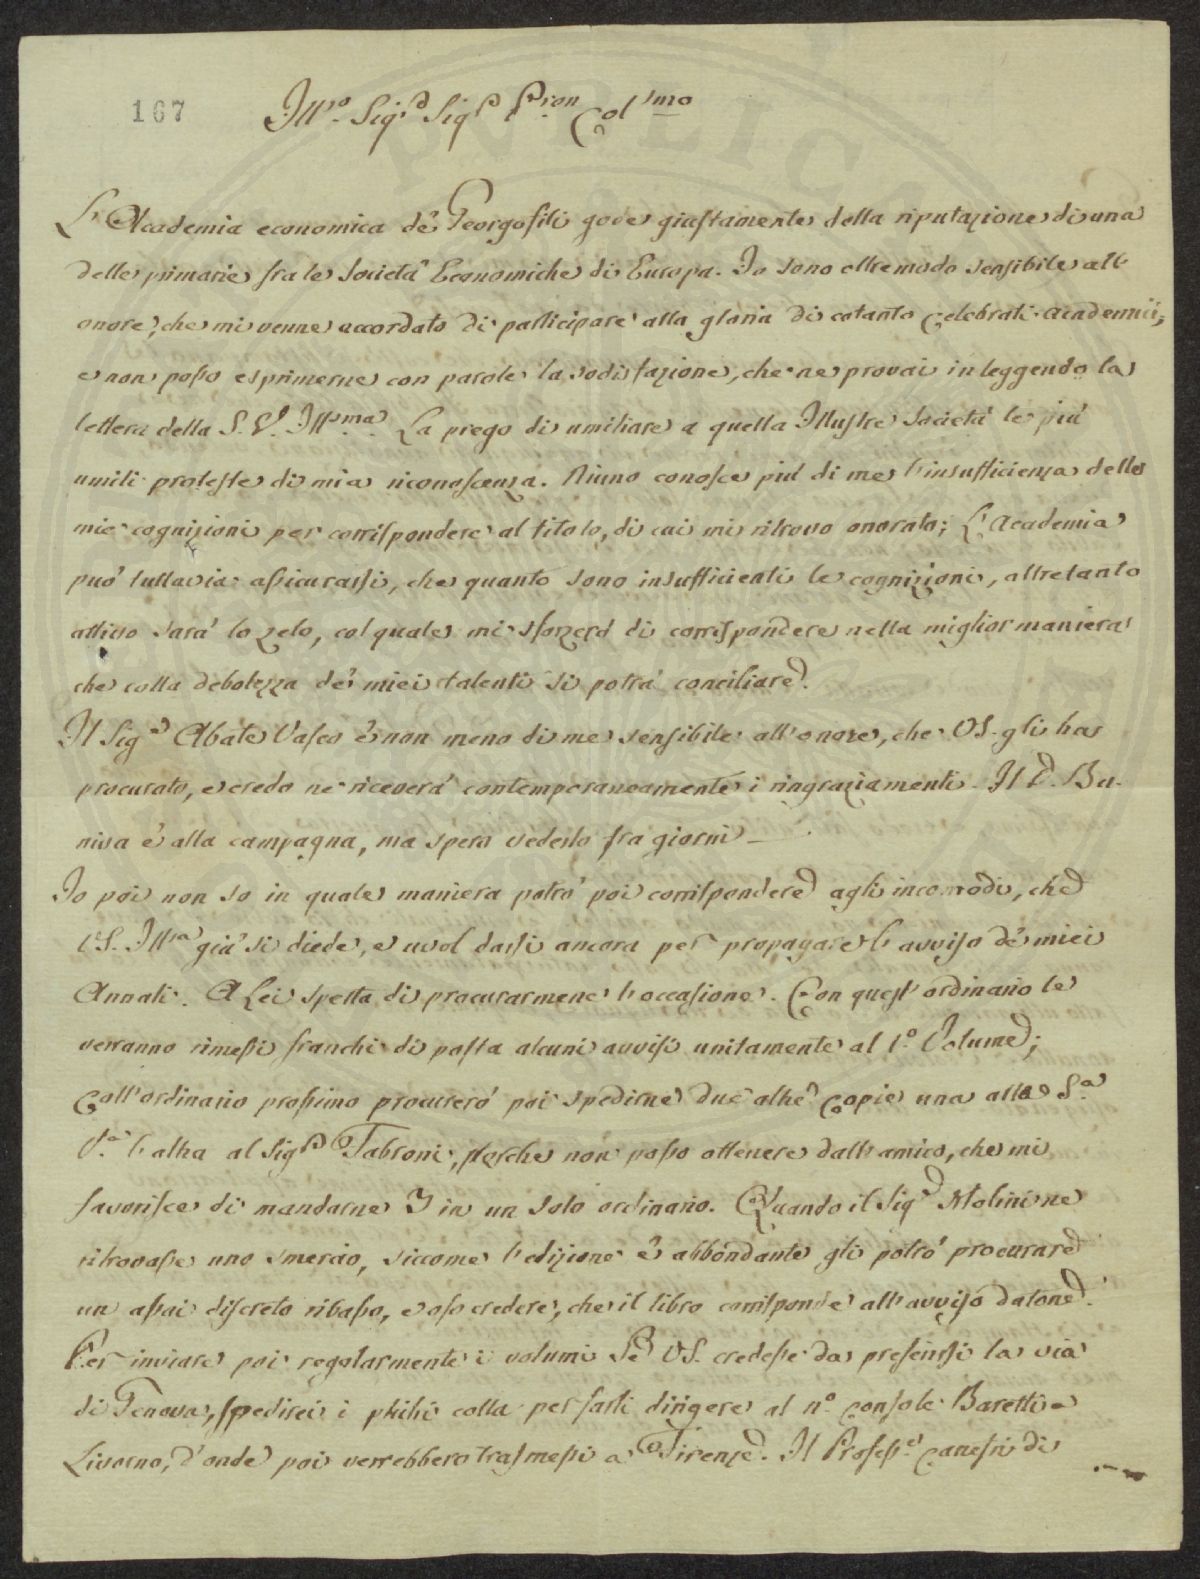 167
Ill.º Sig.r Sig.r P.ron Col.mo
L'Academia economica de' Georgofili gode giustamente della riputazione di una
delle primarie fra le Società Economiche di Europa. Io sono oltremodo sensibile all'
onore, che mi venne accordato di participare alla gloria di cotanto celebrati academici,
e non posso esprimerne con parole la sodisfazione, che ne provai in leggendo la
lettera della S. V. Ill.ma. La prego di umiliare a quella Illustre Società le più
umili proteste di mia riconoscenza. Niuno conosce più di me l'insufficienza delle
mie cognizioni per corrispondere al titolo, di cui mi ritrovo onorato; L'Academia
può tuttavia assicurarsi, che quanto sono insufficienti le cognizioni, altretanto
attivo sarà lo zelo, col quale mi sforzerò di corrispondere nella miglior maniera
che colla debolezza de' miei talenti si potrà conciliare.
Il Sig.r Abate Vasco è non meno di me sensibile all'onore, che VS. gli ha
procurato, e credo ne riceverà contemporaneamente i ringraziamenti. Il D. Bu-
niva è alla campagna, ma spero vederlo fra giorni —
Io poi non so in quale maniera potrò poi corrispondere agli incomodi, che
VS. Ill.a già si diede, e vuol darsi ancora per propagare l'avviso de' miei
Annali. A Lei spetta di procurarmene l'occasione. Con quest'ordinario le
verranno rimessi franchi di posta alcuni avvisi unitamente al 1.º Volume;
Coll'ordinario prossimo procurerò poi spedirne due altre copie una alla S.a
V.a l'altra al Sig.r Fabroni, perche non posso ottenere dall'amico, che mi
favorisce di mandarne 3 in un solo ordinario. Quando il Sig.r Molini ne
ritrovasse uno smercio, siccome l'edizione è abbondante gli potrò procurare
un assai discreto ribasso, e oso credere, che il libro corrisponde all'avviso datone.
Per inviare poi regolarmente i volumi Se VS. credesse da prefersi la via
di Genova, spedirei i plichi colla per farli dirigere al n.º Console Baretti a
Livorno, d'onde poi verrebbero trasmessi a Firenze. Il Profess.e Canestri di